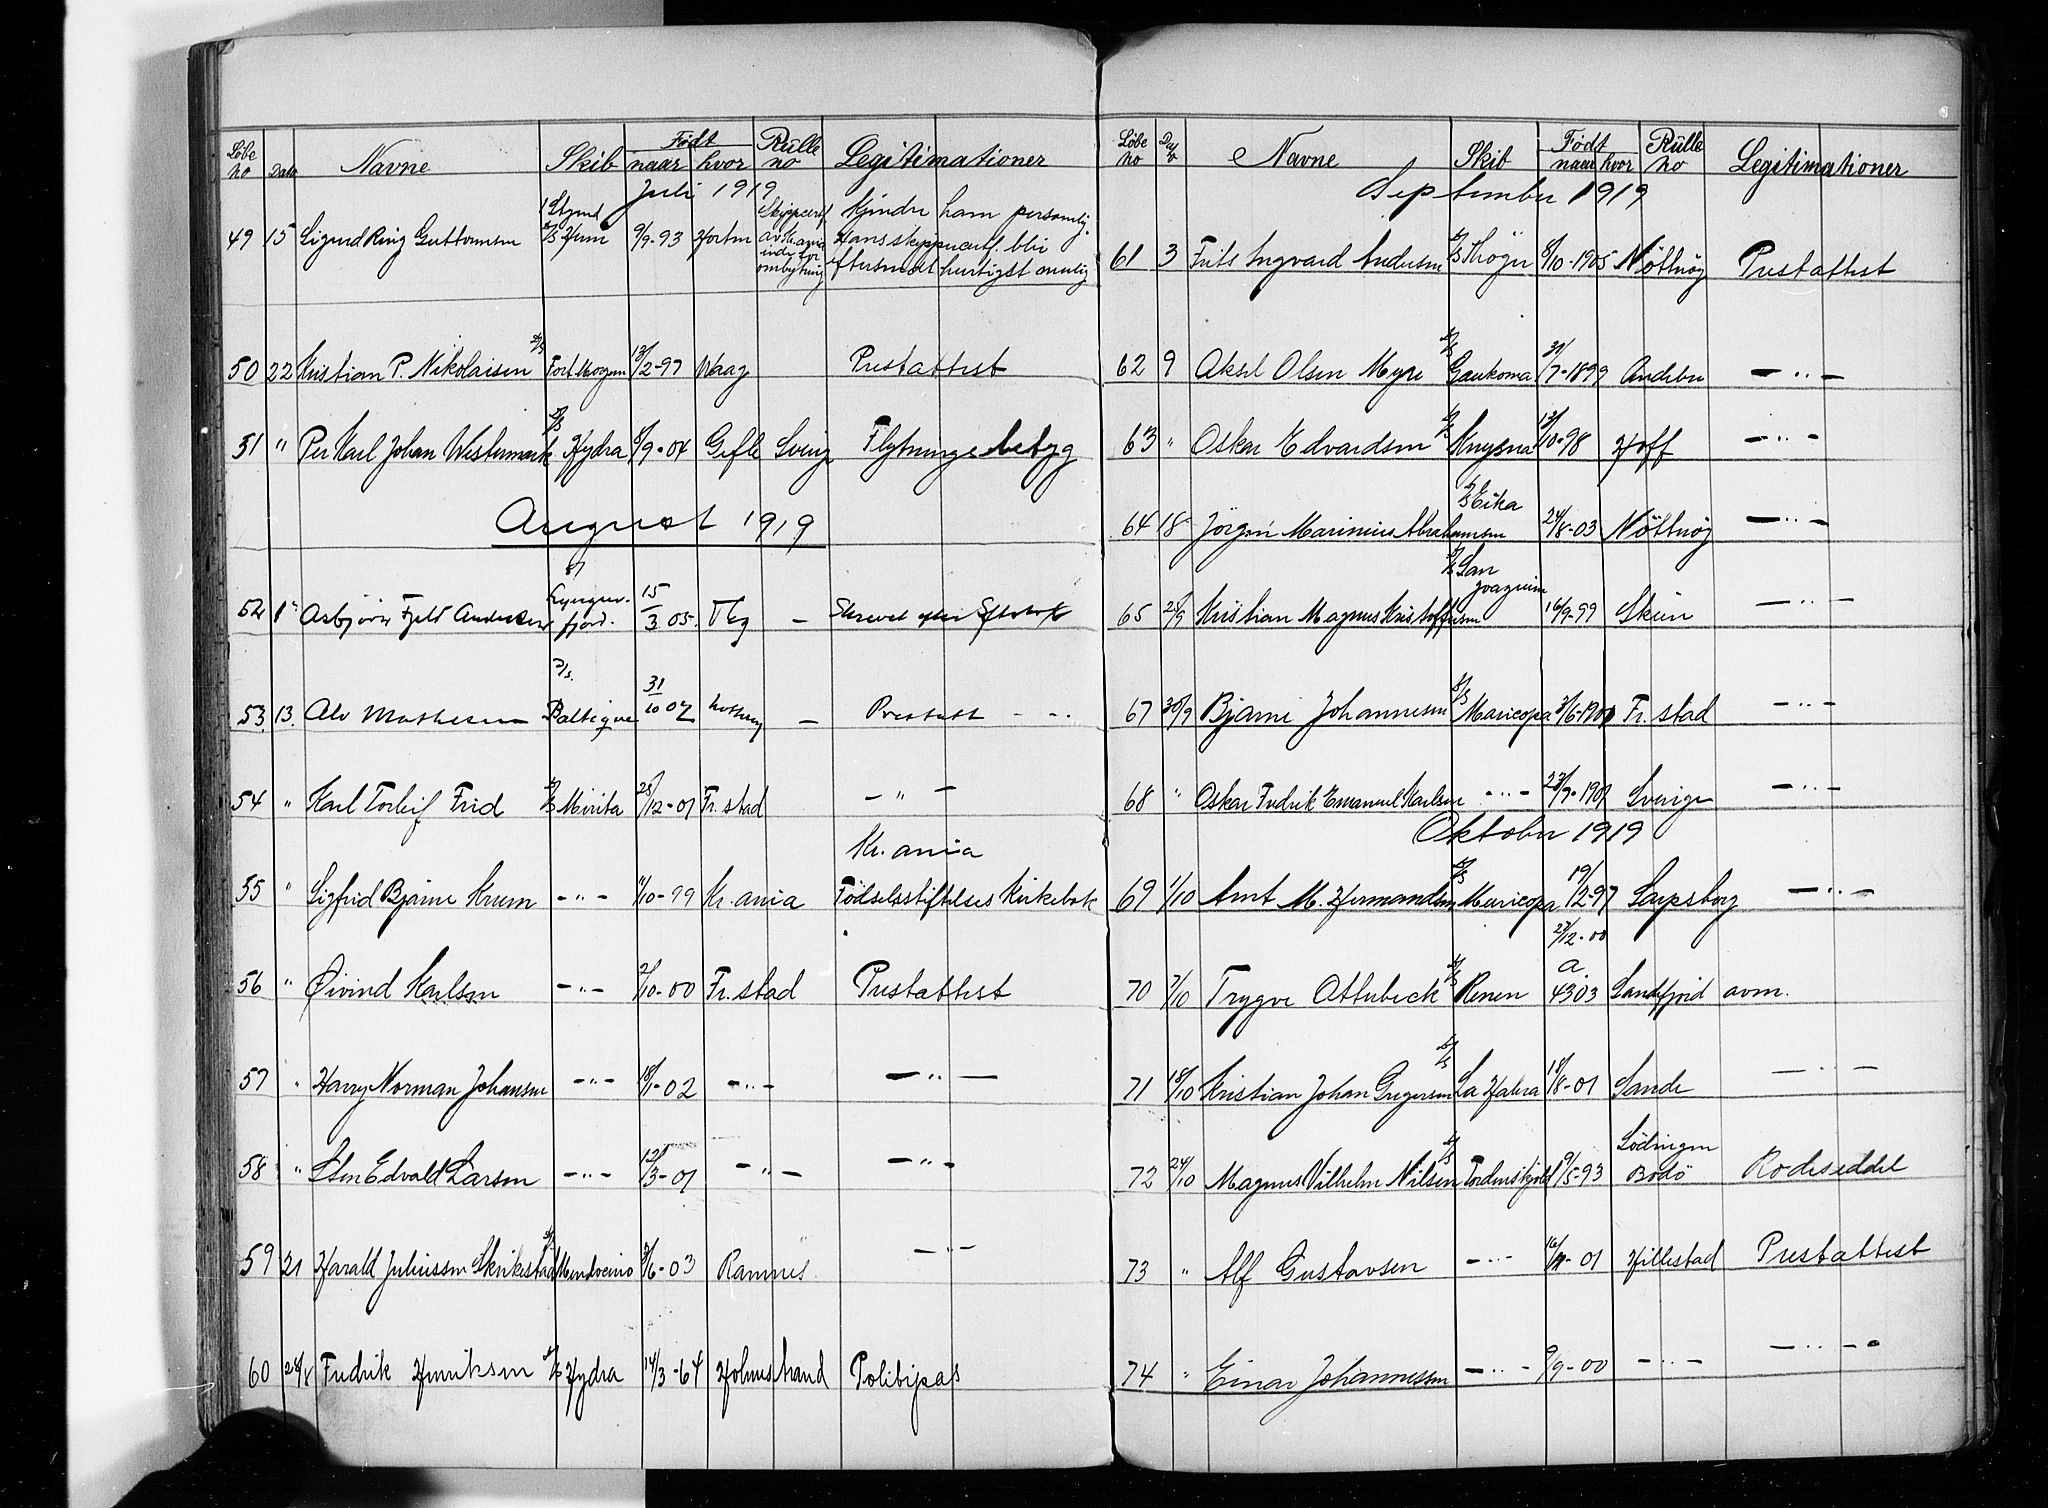 Løbe no Dato Navne Skib Født naar hvor Rulle no Legitimationer
Juli 1919
49 15 Sigurd Ring Guttormsen 1 Styrmd S/S Fern 9/9-93 Horten Skippercert. av Kr.ania inde for ombytning Kjender ham personlig. Hans skippercert. bli eftersendt hurtigst mulig
50 22 Kristian P. Nikolaisen S/S Fort Morgan 13/2-97 Waag Prestattest
51 " Per Karl Johan Westermark S/S Hydra 8/9-04 Gefle Sverig Flytningsbetyg
August 1919
52 1 Asbjørn Fjeld Andersen Lyngenfjord. 15/3 05. Tbg — Skrevet efter
53. 13. Alv Mathisen D/s. Baltique 31/10 02 — Prestatt - - .
54 " Karl Torleif Frid S/S Mirita 25/12-01 Fr.stad — " —
55 " Sigfrid Bjarne Krum — " — 11/10-99 Kr.ania Kr.ania Fødselsstiftelses Kirkebok
56 " Øivind Karlsen — " — 2/10-00 Fr.stad Prestattest
57 " Harry Norman Johansen — " — 18/1-02 — " — — " —
58 " Sten Edvald Larsen — " — 12/3-01 — " — — " —
59 21 Harald Juliussen Skrikestad S/S Mendocino 3/6-03 Ramnes — " —
60 28/8 Fredrik Henriksen S/S Hydra 14/3-64 Holmestrand Politipas
Løbe no Dato Navne Skib Født naar hvor Rulle no Legitimationer
September 1919
61 3 Frits Ingvard Andersen S/S Thöger 8/10-1905 Nötterög Prestattest
62 9 Aksel Olsen Myre S/S Gankoma 31/7-1899 Andebu — " —
63 " Oskar Edvardsen S/S Knysna 12/10-98 Hoff — " —
64 18 Jörgen Marinius Abrahamsen S/S Eika 24/8-03 Nötterög — " —
65 25/9 Kristian Magnus Kristoffersen S/S San Joaquim 16/9-99 Skien — " —
67 30/9 Bjarne Johannesen S/S Maricopa 3/6-1900 Fr.stad — " —
68 " Oskar Fredrik Emanuel Karlsen — " — 23/9-1901 Sverige — " —
Oktober 1919
69 1/10 Arnt M. Hermandsen S/S Maricopa 19/12 97 Sarpsborg — " —
70 7/10 Trygve Otterbeck S/S Renen 27/12-00 a. 4303 Sandefjord avm.
71 18/10 Kristian Johan Gregersen S/S La Habra 18/8-01 Sande — " —
72 24/10 Magnus Vilhelm Nilsen S/S Tordenskjold 9/5-93 Lödingen Bodö Rodeseddel
73 " Alf Gustavsen — " — 16/11-01 Hillestad Prestattest
74 " Einar Johannessen — " — 9/9-00 — " — — " —